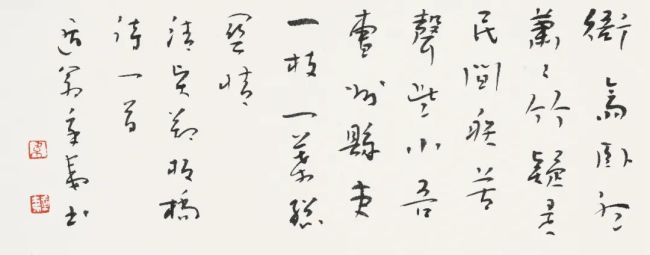 衙齋卧聽
蕭〻竹疑是
民間疾苦
聲些小吾
曹州縣吏
一枝一葉總
關情
清鄭板橋
詩一首
翁書